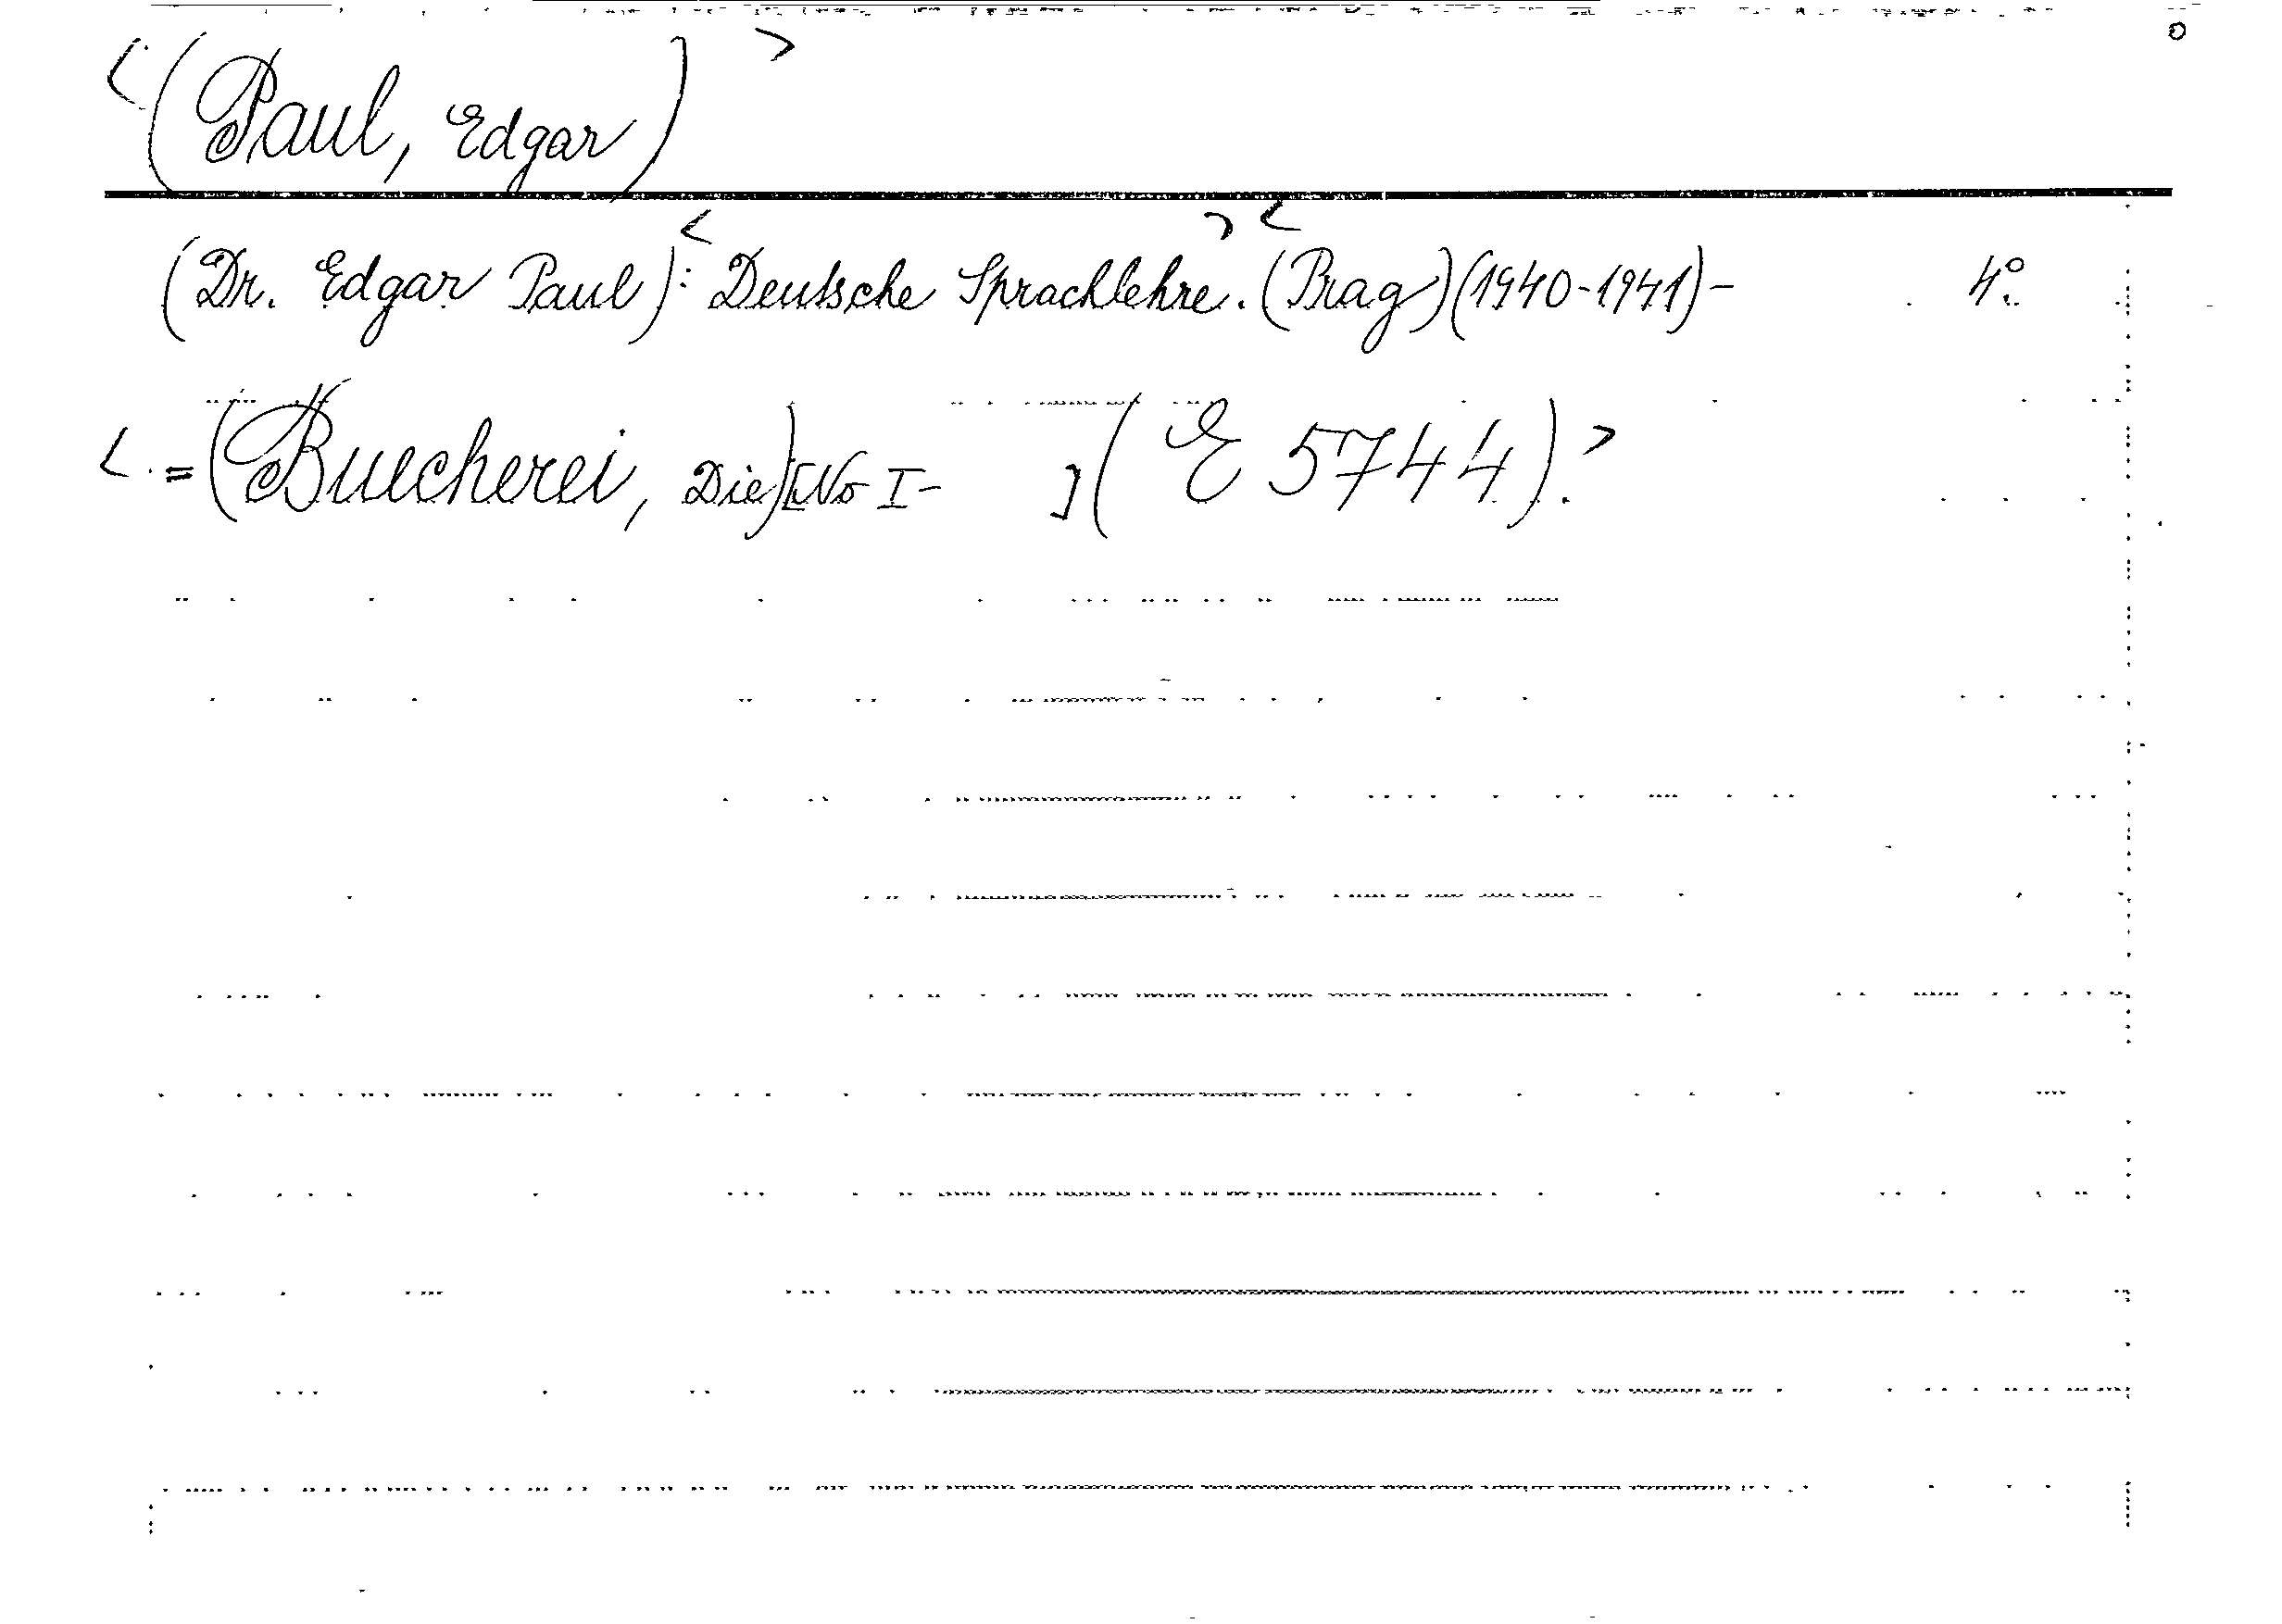 <(Paul, Edgar)>
(Dr. Edgar Paul): <Deutsche Sprachlehre.> <(Prag)(1940-1941)- 4°.
<.=(Buecherei, Die)[No I- ](E 5744).>